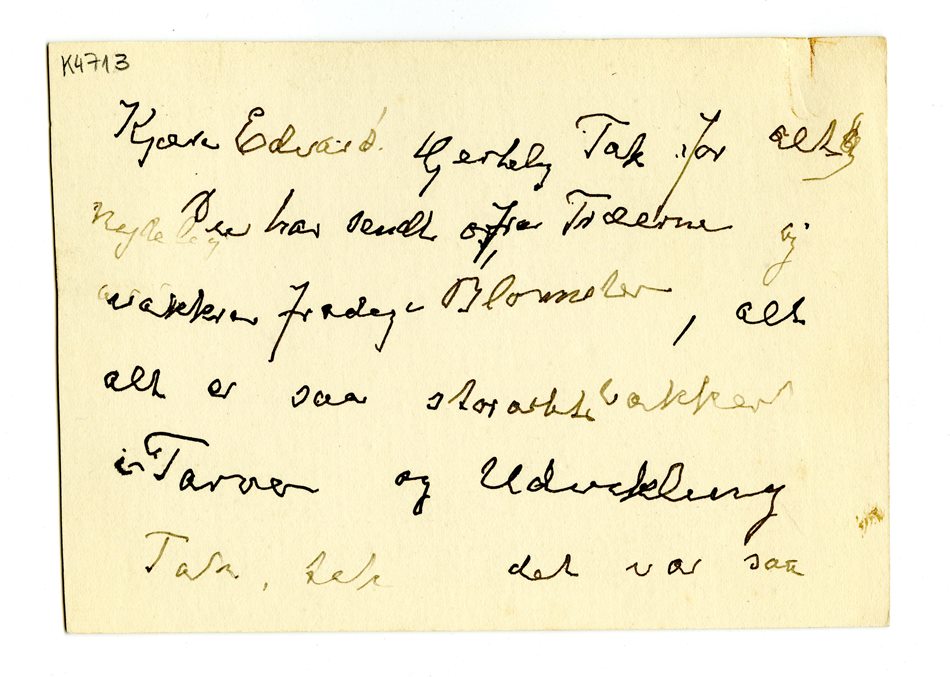 K4713
Kjære Edvard. Hjertelig Tak for alt
Du har sendt fra Trærne og
vakkre Blomster, alt
alt er saa storartet vakkert
i Farver og Udvikling
Tak, tak det var saa